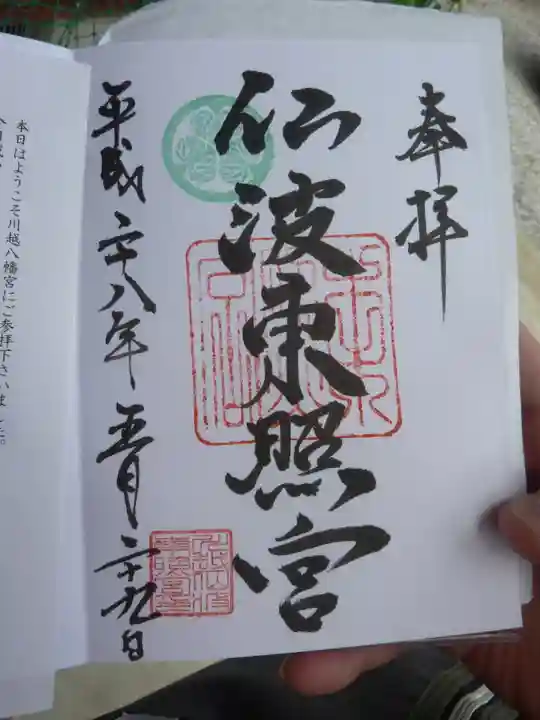 奉拝
仙波東照宮
平成二十八年五月二十九日
本日はようこそ川越八幡宮にご参拝下さいました。